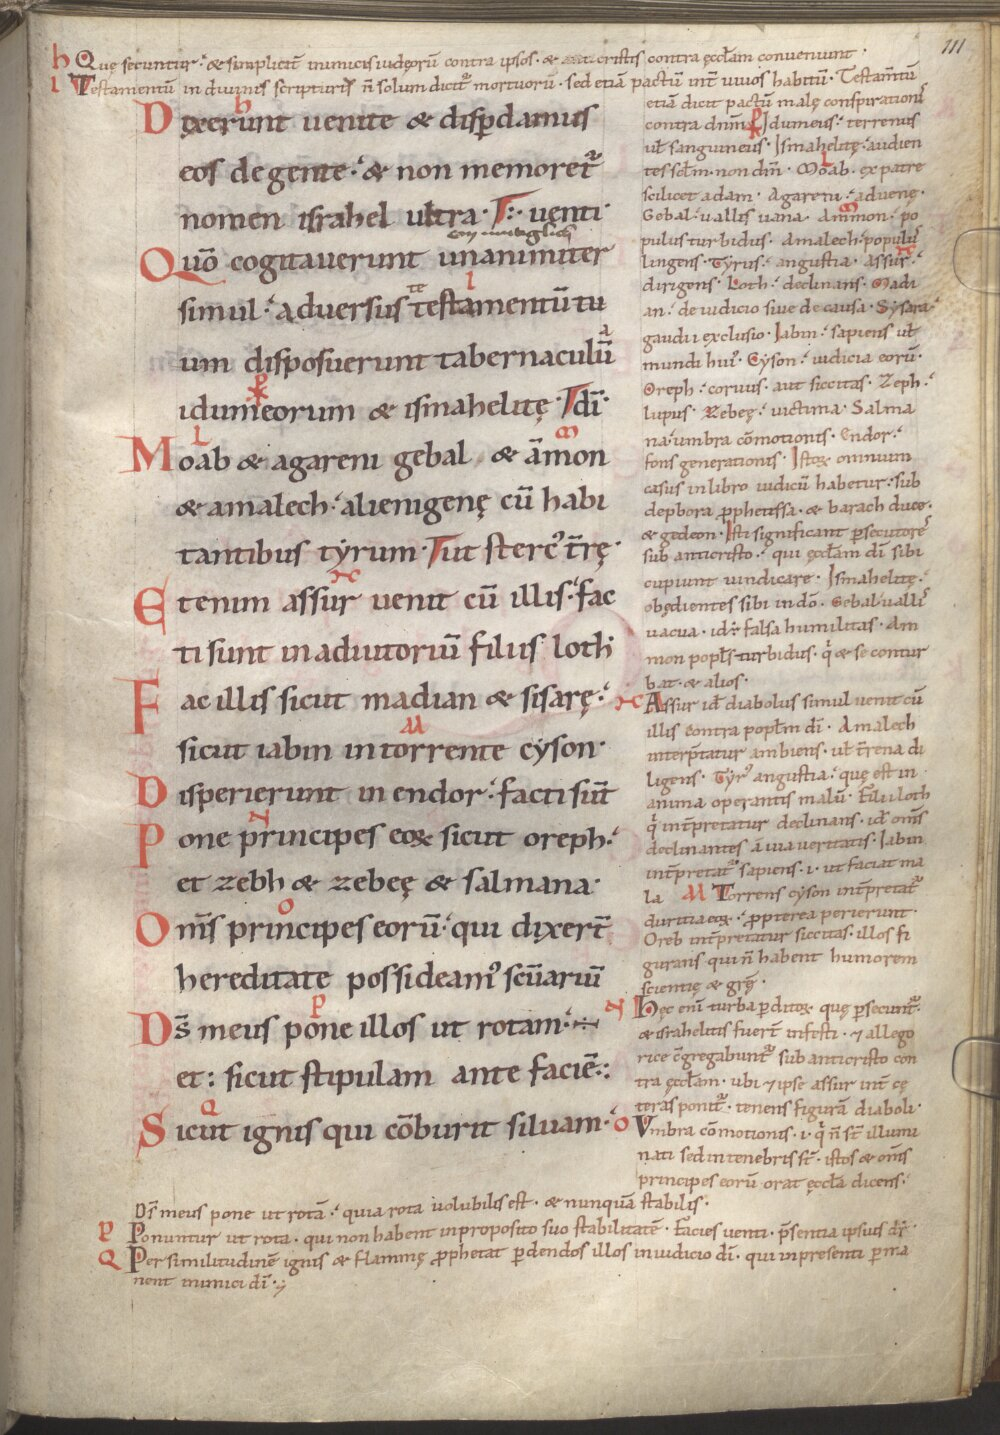 111
h Quę secuntur ⁊ & simplicit̄ inimicis iudęorū contra ipsos · & anticristis contra ęcclam conveniunt ·
l Testamentū in diuinis scripturis n̄ solum dicit᷑ mortuorū · sed etiā pactū int̄ uiuos habitū · Testam̄tū
Dixerunt uenite & disp̱damus
eos de gente · & non memoret᷑
nomen israhel ultra · uenti ·
Quō cogitauerunt unanimiter
simul · aduersus testamentū tu
um disposuerunt tabernaculū
idumeorum & ismahelitę · dī ·
Moab & agareni gebal & āmon
& amalech · alienigenę cū habi
tantibus tyrum · ut sterc᷒ t̄rę ·
Etenim assur uenit cū illis · fac
ti sunt in adiutoriū filiis loth
Fac illis sicut madian & sisarę ·
sicut iabin in torrente cyson ·
Disperierunt in endor · facti sūt
Pone principes eoꝝ sicut oreph ·
et zebh & zebeę & salmana ·
Om̄s principes eorū · qui dixer̄t
hereditate possideam᷒ scūariū
Ds̄ meus pone illos ut rotam ·
et : sicut stipulam ante faciē :
Sicut ignis qui cōburit siluam ·
etiā dicit pactū malę conspirationis
contra dnm̄ Idumeus · terrenus
ul̄ sanguineus · Ismahelitę · audien
tes sclm̄ · non dm̄ · Moab · ex patre
scilicet adam · Agareni · aduenę ·
Gebal · uallis uana · Ammon · po
pulus turbidus · Amalech · populus
lingens · Tyrus · angustia · assur ·
dirigens · Loth · declinans · Madi
an · de iudicio siue de causa · Sysara
gaudii exclusio · Iabin · sapiens ul̄
mundi hui᷒ · Cyson · iudicia eorū ·
Oreph · coruus · aut siccitas · Zeph ·
lupus · Zebeę · uictima · Salma
na · umbra cōmotionis · Endor ·
fons generationis · Istoꝝ omnium
casus in libro iudicū habetur · sub
depbora ꝓphetissa · & barach duce ·
& gedeon · Isti significant p̱secutores
sub anticristo · qui ęcclam dī sibi
cupiunt uindicare · Ismahelitę ·
obędientes sibi in dō · Gebal · uallis
uacua · id ÷ falsa humilitas · Am
mon popl̄s turbidus · q̇ & se contur
bat · & alios ·
Assur id̄ diabolus simul uenit cū
illis contra popl̄m dī · Amalech
interp̄tatur ambiens · ul̄ t̄rena di
ligens · Tyr᷒ angustia · quę est in
anima operantis malū · Filii loth
q̇ int̄pretatur declinans · id̄ om̄s
declinantes a uia ueritatis · Iabin
int̄pretat᷑ sapiens · i · ut faciat ma
la M Torrens cyson int̄pretat᷑
duritia eoꝝ · ꝓpterea perierunt ·
Oreb int̄pretatur siccitas · illos fi
gurans qui n̄ habent humorem
scientię & grę̄ ·
N Hęc enī turba p̱ditoꝝ · quę p̱secunt᷑ ·
& israhelitis fuer̄t infesti · ⁊ allego
rice c̄gregabunt᷑ sub anticristo con
tra ęcclam · ubi ⁊ ipse assur int̄ cę
teras ponit᷑ · tenens figurā diaboli ·
O Vmbra cōmotionis · i · q̇ n̄ st̄ illumi
nati sed in tenebris st̄ · istos & om̄s
principes eorū orat ęccla dicens ·
Ds̄ meus pone ut rotā · quia rota uolubilis est · & nunquā stabilis ·
P Ponuntur ut rota · qui non habent in proposito suo stabilitatē · Facies uenti · p̄sentia ipsius dr̄ ·
Q Per similitudinē ignis & flammę ꝓphetat p̱dendos illos in iudicio dī · qui in presenti p̱ma
nent inimici dī ·